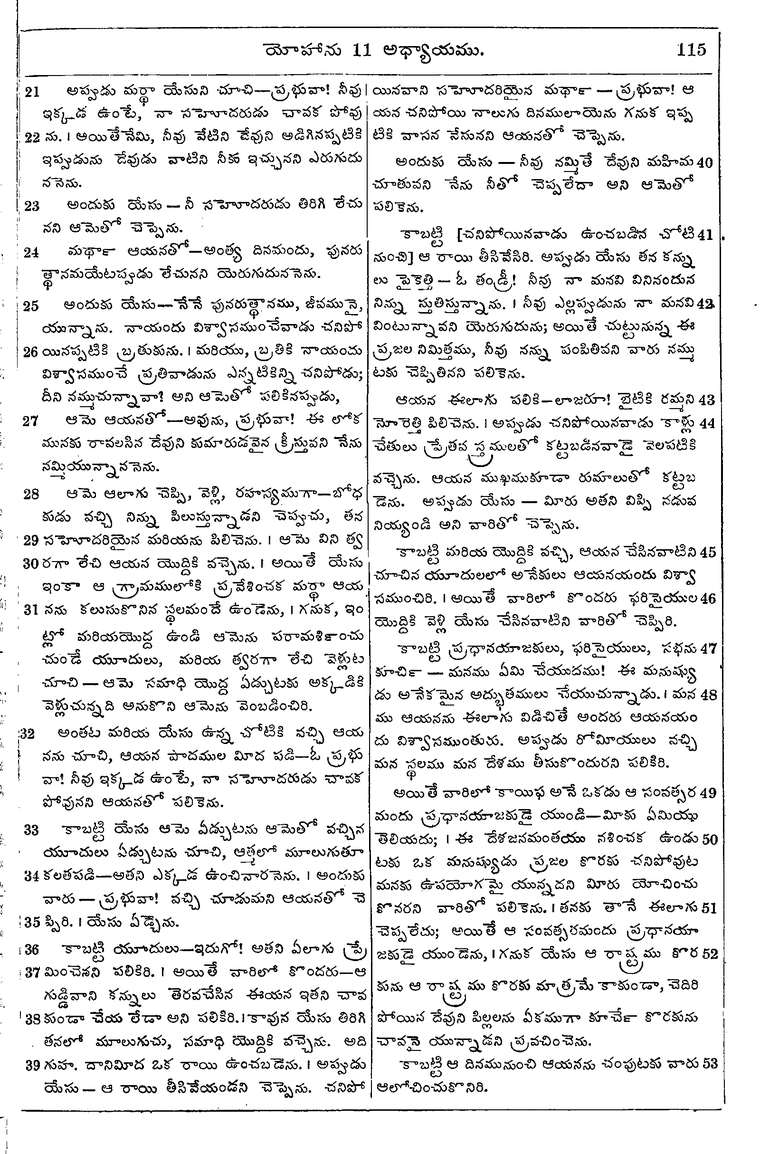 యోహాను 11 అధ్యాయము. 115
21 అప్పుడు మర్థా యేసుని చూచి—ప్రభువా! నీవు
ఇక్కడ ఉంటే, నా సహెూదరుడు చావక పోవు
22 ను. । అయితేనేమి, నీవు వేటిని దేవుని అడిగినప్పటికి
ఇప్పుడును దేవుడు వాటిని నీకు ఇచ్చునని ఎరుగుదు
ననెను.
23 అందుకు యేసు — నీ సహెూదరుడు తిరిగి లేచు
నని ఆమెతో చెప్పెను.
24 మర్థా ఆయనతో—అంత్య దినమందు, పునరు
త్థానమయేటప్పుడు లేచునని యెరుగుదుననెను.
25 అందుకు యేసు—నేనే పునరుత్థానము, జీవమునై,
యున్నాను. నాయందు విశ్వాసముంచేవాడు చనిపో
26 యినప్పటికి బ్రతుకును. । మరియు, బ్రతికి నాయందు
విశ్వాసముంచే ప్రతివాడును ఎన్నటికిన్ని చనిపోడు;
దీని నమ్ముచున్నావా! అని ఆమెతో పలికినప్పుడు,
27 ఆమె ఆయనతో—అవును, ప్రభువా! ఈ లోక
మునకు రావలసిన దేవుని కుమారుడవైన క్రీస్తువని నేను
నమ్మియున్నాననెను.
28 ఆమె ఆలాగు చెప్పి, వెళ్లి, రహస్యముగా—బోధ
కుడు వచ్చి నిన్ను పిలుస్తున్నాడని చెప్పుచు, తన
29 సహెూదరియైన మరియను పిలిచెను. । ఆమె విని త్వ
30 రగా లేచి ఆయన యొద్దికి వచ్చెను. । అయితే యేసు
ఇంకా ఆ గ్రామములోకి ప్రవేశించక మర్థా ఆయ
31 నను కలుసుకొనిన స్థలమందే ఉండెను, । గనుక, ఇం
ట్లో మరియయొద్ద ఉండి ఆమెను పరామర్శించు
చుండే యూదులు, మరియ త్వరగా లేచి వెళ్లుట
చూచి — ఆమె సమాధి యొద్ద ఏడ్చుటకు అక్కడికి
వెళ్లుచున్నది అనుకొని ఆమెను వెంబడించిరి.
32 అంతట మరియ యేసు ఉన్న చోటికి వచ్చి ఆయ
నను చూచి, ఆయన పాదముల మీద పడి—ఓ ప్రభు
వా! నీవు ఇక్కడ ఉంటే, నా సహెూదరుడు చావక
పోవునని ఆయనతో పలికెను.
33 కాబట్టి యేసు ఆమె ఏడ్చుటను ఆమెతో వచ్చిన
యూదులు ఏడ్చుటను చూచి, ఆత్మలో మూలుగుతూ
34 కలతపడి—అతని ఎక్కడ ఉంచినారనెను. । అందుకు
వారు — ప్రభువా! వచ్చి చూడుమని ఆయనతో చె
35 ప్పిరి. । యేసు ఏడ్చెను.
36 కాబట్టి యూదులు—ఇదుగో! అతని ఏలాగు ప్రే
37 మించెనని పలికిరి. । అయితే వారిలో కొందరు—ఆ
గుడ్డివాని కన్నులు తెరవచేసిన ఈయన ఇతని చావ
38 కుండా చేయ లేడా అని పలికిరి. । కావున యేసు తిరిగి
తనలో మూలుగుచు, సమాధి యొద్దికి వచ్చెను. అది
39 గుహ. దానిమీద ఒక రాయి ఉంచబడెను. । అప్పుడు
యేసు — ఆ రాయి తీసివేయండని చెప్పెను. చనిపో
యినవాని సహెూదరియైన మర్థా — ప్రభువా! ఆ
యన చనిపోయి నాలుగు దినములాయెను గనుక ఇప్ప
టికి వాసన వేసునని ఆయనతో చెప్పెను.
అందుకు యేసు — నీవు నమ్మితే దేవుని మహిమ 40
చూతువని నేను నీతో చెప్పలేదా అని ఆమెతో
పలికెను.
కాబట్టి [చనిపోయినవాడు ఉంచబడిన చోటి 41
నుంచి] ఆ రాయి తీసివేసిరి. అప్పుడు యేసు తన కన్ను
లు పైకెత్తి — ఓ తండ్రీ! నీవు నా మనవి వినినందున
నిన్ను స్తుతిస్తున్నాను. । నీవు ఎల్లప్పుడును నా మనవి 42
వింటున్నావని యెరుగుదును; అయితే చుట్టునున్న ఈ
ప్రజల నిమిత్తము, నీవు నన్ను పంపితివని వారు నమ్ము
టకు చెప్పితినని పలికెను.
ఆయన ఈలాగు పలికి—లాజరూ! బైటికి రమ్మని 43
మొరెత్తి పిలిచెను. । అప్పుడు చనిపోయినవాడు కాళ్లు 44
చేతులు ప్రేతవస్త్రములతో కట్టబడినవాడై వెలపటికి
వచ్చెను. ఆయన ముఖముకూడా రుమాలుతో కట్టబ
డెను. అప్పుడు యేసు — మీరు అతని విప్పి నడువ
నియ్యండి అని వారితో చెప్పెను.
కాబట్టి మరియ యొద్దికి వచ్చి, ఆయన చేసినవాటిని 45
చూచిన యూదులలో అనేకులు ఆయనయందు విశ్వా
సముంచిరి. । అయితే వారిలో కొందరు ఫరిసైయుల 46
యొద్దికి వెళ్లి యేసు చేసినవాటిని వారితో చెప్పిరి.
కాబట్టి ప్రధానయాజకులు, ఫరిసైయులు, సభను 47
కూర్చి — మనము ఏమి చేయుదము! ఈ మనుష్యు
డు అనేకమైన అద్భుతములు చేయుచున్నాడు. । మన 48
ము ఆయనను ఈలాగు విడిచితే అందరు ఆయనయం
దు విశ్వాసముంతురు. అప్పుడు రోమీయులు వచ్చి
మన స్థలము మన దేశము తీసుకొందురని పలికిరి.
అయితే వారిలో కాయిఫ అనే ఒకడు ఆ సంవత్సర 49
మందు ప్రధానయాజకుడై యుండి—మీకు ఏమియు
తెలియదు; । ఈ దేశజనమంతయు నశించక ఉండు 50
టకు ఒక మనుష్యుడు ప్రజల కొరకు చనిపోవుట
మనకు ఉపయోగమై యున్నదని మీరు యోచించు
కొనరని వారితో పలికెను. । తనకు తానే ఈలాగు 51
చెప్పలేదు; అయితే ఆ సంవత్సరమందు ప్రధానయా
జకుడై యుండెను, । గనుక యేసు ఆ రాష్ట్రము కొర 52
కును ఆ రాష్ట్రము కొరకు మాత్రమే కాకుండా, చెదిరి
పోయిన దేవుని పిల్లలను ఏకముగా కూర్చే కొరకును
చావనై యున్నాడని ప్రవచించెను.
కాబట్టి ఆ దినమునుంచి ఆయనను చంపుటకు వారు 53
ఆలోచించుకొనిరి.